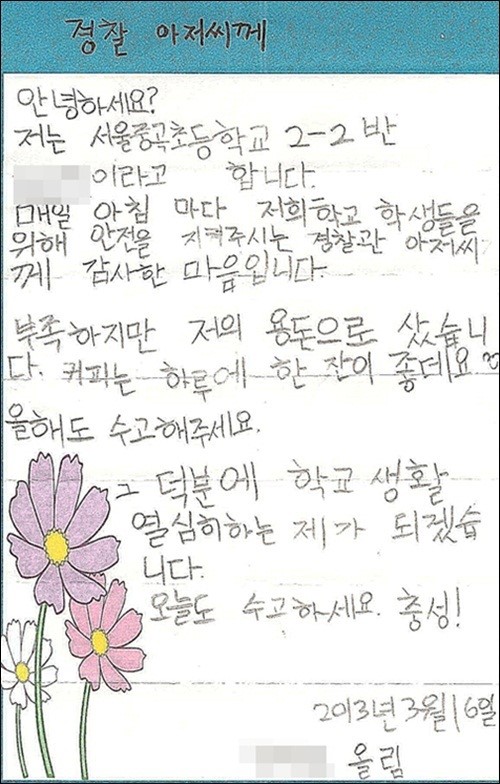 경찰 아저씨께
안녕하세요?
저는 서울중곡초등학교 2-2 반
이라고 합니다.
매일 아침 마다 저희학교 학생들을
위해 안전을 지켜주시는 경찰관 아저씨
께 감사한 마음입니다.
부족하지만 저의 용돈으로 샀습니
다. 커피는 하루에 한 잔이 좋데요
올해도 수고해주세요.
그 덕분에 학교 생활
열심히하는 제가 되겠습
니다.
오늘도 수고하세요. 충성!
2013년 3월 16일
올림